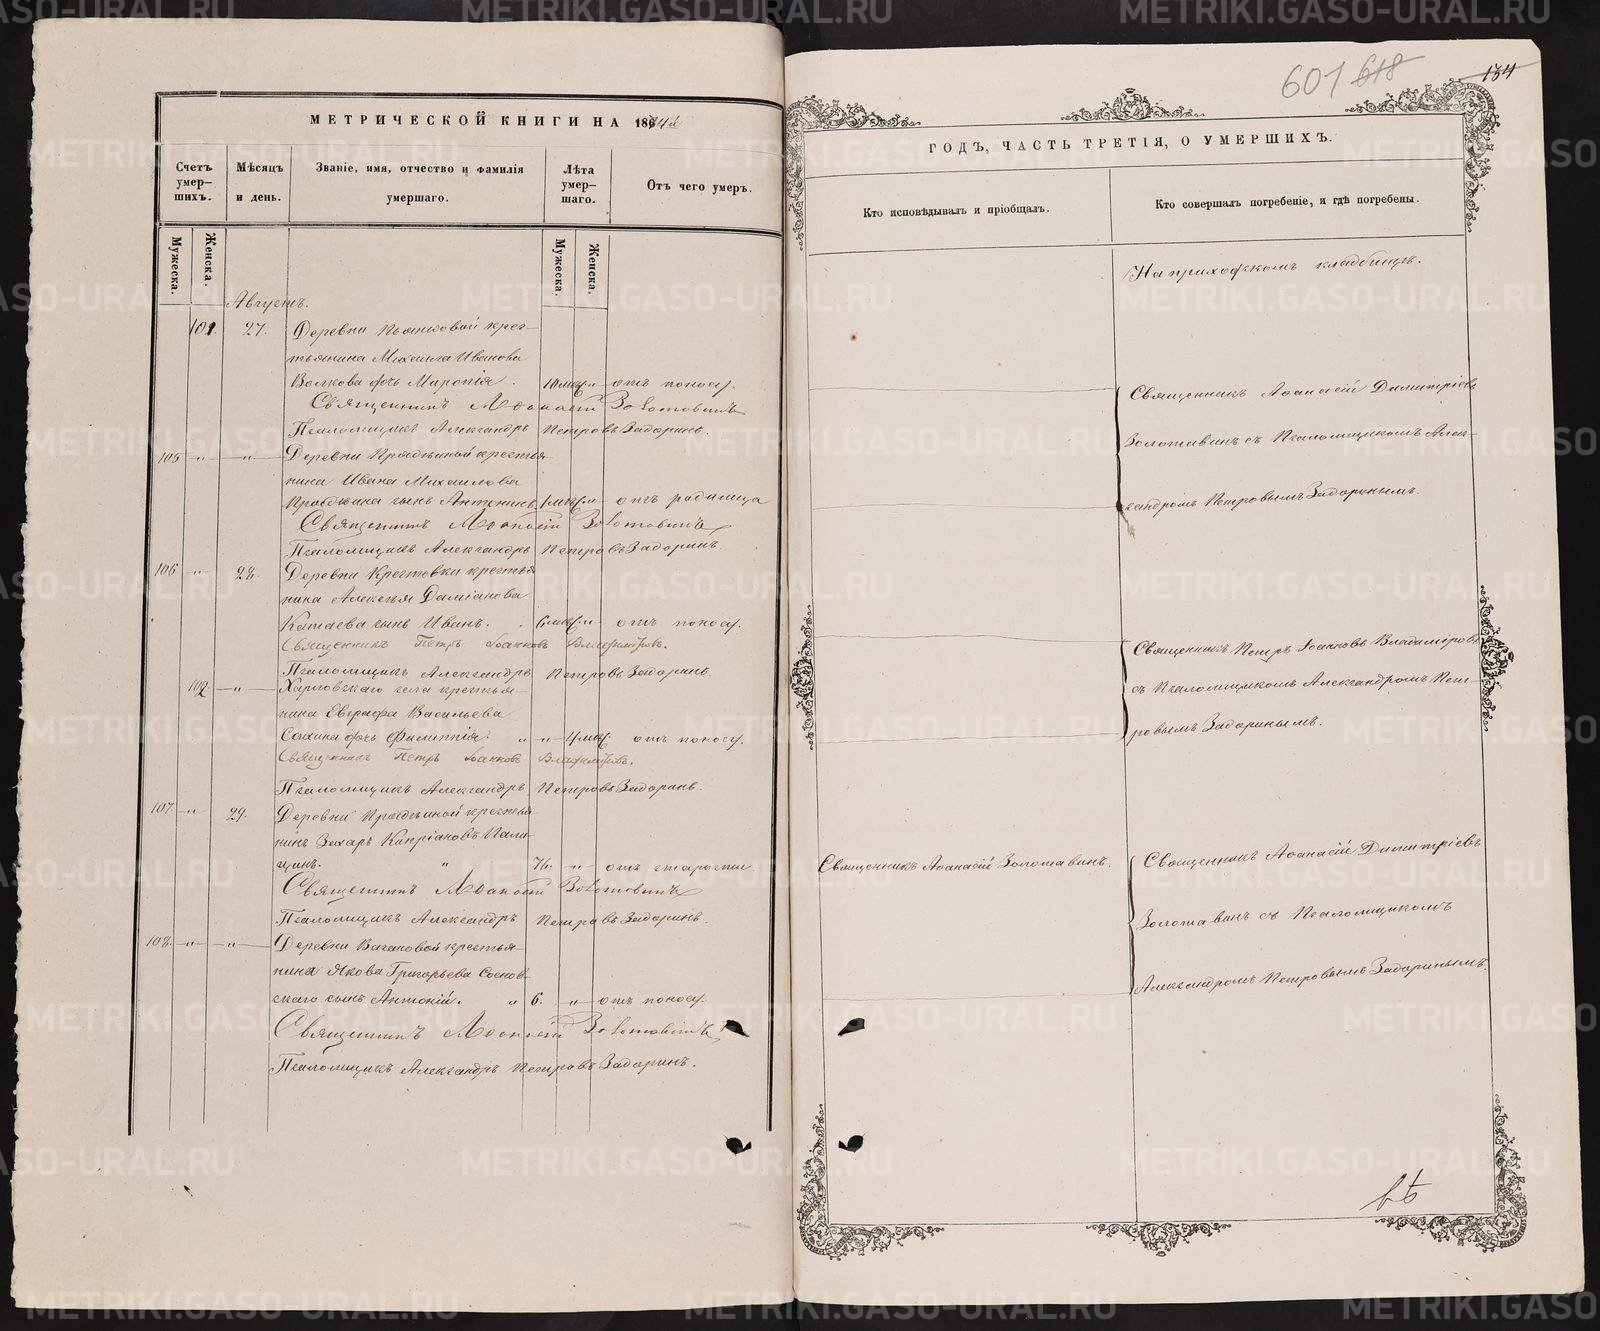 МЕТРИЧЕСКОЙ КНИГИ НА 186
Счетъ умер-шихъ.
Мѣсяцъ и день.
Званіе, имя, отчество и фамилія умершаго.
Лѣта умер-шаго.
Отъ чего умеръ.
Мужеска.
Женска.
Мужеска.
Женска.
Августъ.
101. 27. Деревни крес-
тьянина Михаила Иванова
Волкова дочь отъ поносу.
Священникъ Аѳанасій Золотавинъ
Псаломщикъ Александръ Петровъ Задоринъ.
105 „ „ Деревни крестья-
нина Ивана Михаилова
сынъ Антонинъ 1 мѣс. „ отъ родимца
Священникъ Аѳанасій Золотавинъ
Псаломщикъ Александръ Петровъ Задоринъ.
106 „ 28. Деревни Крестовки крестья-
нина Алексѣя Даміанова
Катаева сынъ Иванъ. 6 мѣс. „ отъ поносу.
Священникъ Петръ Іоанновъ Владиміровъ.
Псаломщикъ Александръ Петровъ Задоринъ.
102 „ Харловскаго села крестья-
нина Евграфа Васильева
дочь Филиппія. „ „ 4 мѣс. отъ поносу.
Священникъ Петръ Іоанновъ Владиміровъ.
Псаломщикъ Александръ Петровъ Задоринъ.
107. „ 29. Деревни крестья-
нинъ Захаръ Кипріановъ Пали-
цинъ. „ 76. „ отъ старости
Священникъ Аѳанасій Золотавинъ
Псаломщикъ Александръ Петровъ Задоринъ.
108. „ „ Деревни Вагановой крестья-
нина Якова Григорьева Соснов-
скаго сынъ Антоній. „ 6. „ отъ поносу.
Священникъ Аѳанасій Золотавинъ
Псаломщикъ Александръ Петровъ Задоринъ.
601 618 184
ГОДЪ, ЧАСТЬ ТРЕТІЯ, О УМЕРШИХЪ.
Кто исповѣдывалъ и пріобщалъ.
Кто совершалъ погребеніе, и гдѣ погребены.
На приходскомъ кладбищѣ.
Священникъ Аѳанасій Димитріевъ
Золотавинъ съ Псаломщикомъ Алек-
сандромъ Петровымъ Задоринымъ.
Священникъ Петръ Іоанновъ Владиміровъ
съ Псаломщикомъ Александромъ Пет-
ровымъ Задоринымъ.
Священникъ Аѳанасій Золотавинъ.
Священникъ Аѳанасій Димитріевъ
Золотавинъ съ Псаломщикомъ
Александромъ Петровымъ Задоринымъ.
METRIKI.GASO-URAL.RU